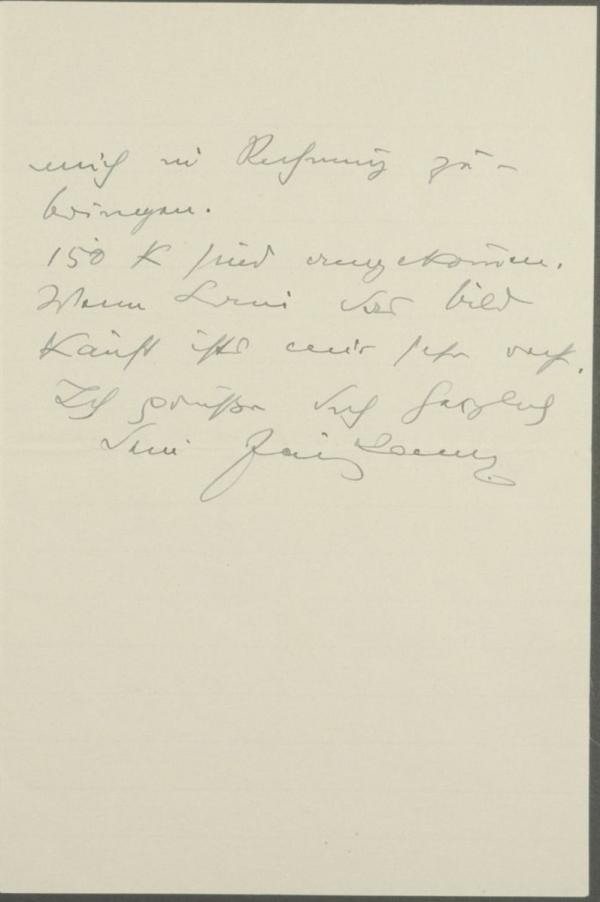 mich in Rechnung zu
bringen.
150 K sind angekommen.
Wenn das Bild
kauft ists mir sehr recht.
Ich grüße Dich herzlich
Dein